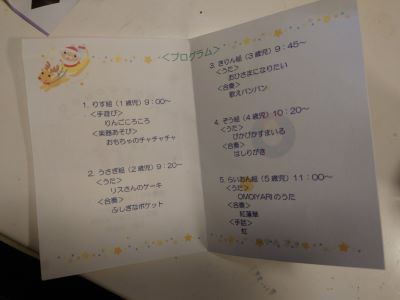 <プログラム>
1. りす組（1歳児）9：00〜
<手遊び>
りんごころころ
<楽器あそび>
おもちゃのチャチャチャ
2. うさぎ組（2歳児）9：20〜
<うた>
リスさんのケーキ
<合奏>
ふしぎなポケット
3. きりん組（3歳児）9：45〜
<うた>
おひさまになりたい
<合奏>
歌えバンバン
4. ぞう組（4歳児）10：20〜
<うた>
ぴかぴかすまいる
<合奏>
はしりがき
5. らいおん組（5歳児）11：00〜
<うた>
OMOIYARIのうた
<合奏>
紅蓮華
<手話>
虹